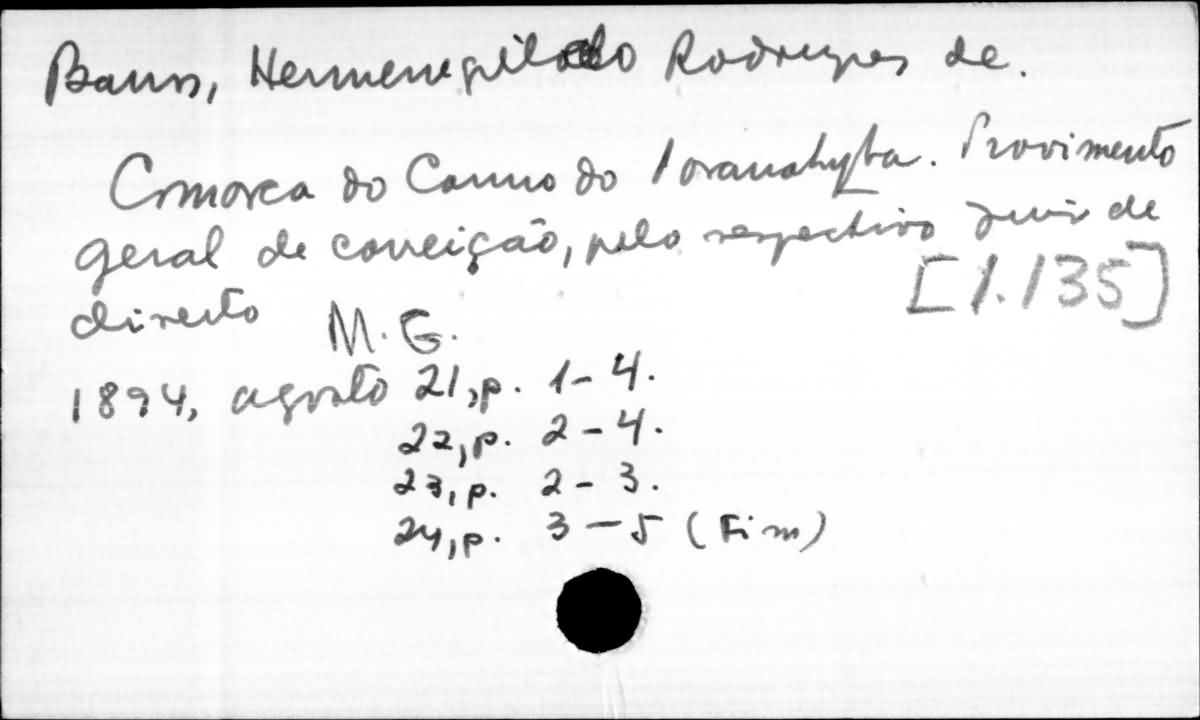 Barros, Hermenegildo Rodrigues de.
Comarca do Carmo do Paranahyba. Provimento
geral de correição, pelo respectivo juiz de
direito
[1.135]
M. G.
1894, agosto 21, p. 1-4.
22, p. 2-4.
23, p. 2-3.
24, p. 3-5 (Fim)